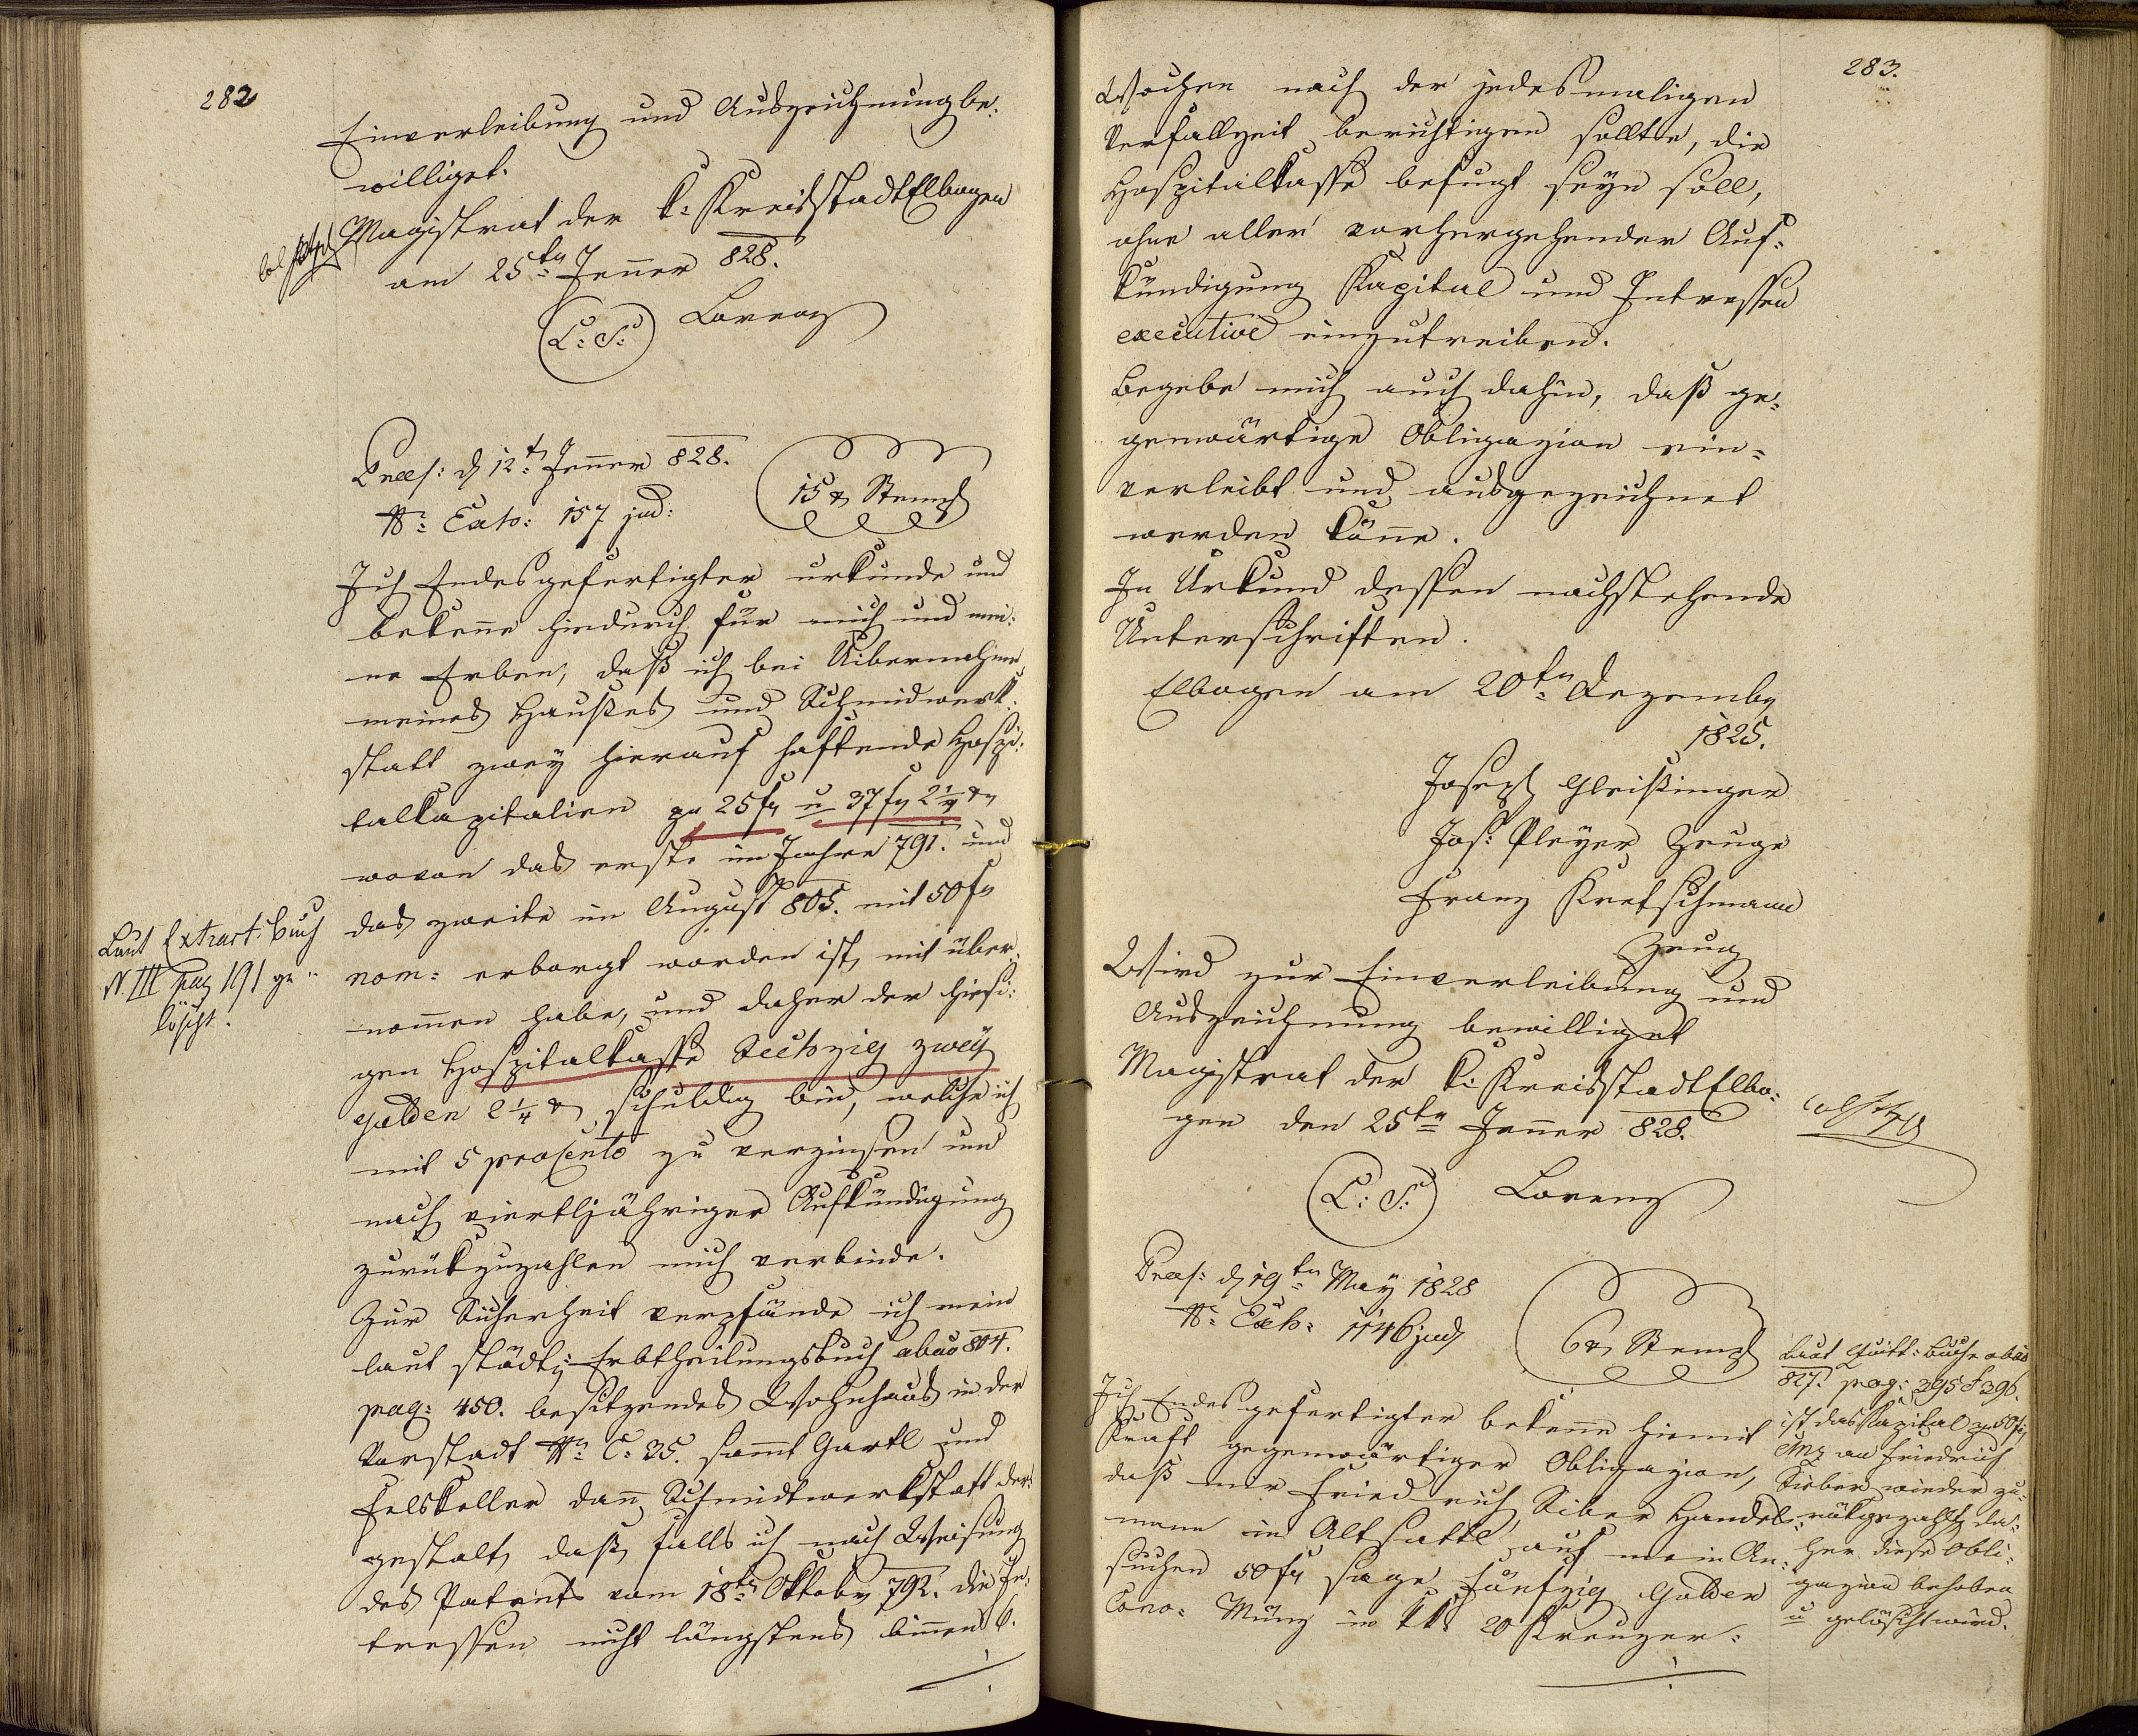 282
Einverleibung und Auszeichnung be-
williget.
Magistrat der k: Kreisstadt Elbogen
am 25ten Jenner 828.
(L: S:) Lorenz
Praes: d 12t Jenner 828.
Nr: Exh: 157 jud:
15 x Stempl
Ich Endesgefertigter urkunde und
bekenne hiedurch für mich und mei-
ne Erben, daß ich bei Uibernahme
meines Haußes und Schmidwerk-
statt zwey hierauf haftende Hospi-
talkapitalien zu 25 fl u 37 fl 2 1/4 x
wovon das erste im Jahre 791. und
das zweite im August 805. mit 50 fl
nom: erborgt worden ist, mit über-
nommen habe, und daher der hiesi-
gen Hospitalkasse Sechzig zwey
Gulden 2 1/4 x schuldig bin, welche ich
mit 5 proCento zu verzinsen und
nach viertljähriger Aufkündigung
zurückzuzahlen mich verbinde.
Zur Sicherheit verpfände ich mein
laut städt: Erbtheilungsbuch abao 804.
pag: 450. besitzendes Wohnhaus in der
Vorstadt Nr: C: 35. sammt Gartl und
Felskeller dann Schmidtwerkstatt der-
gestalt, daß, falls ich nach Weisung
des Patents vom 18ten Oktober 792. die In-
tressen nicht längstens binnen 6.
Laut Extract: Buch
N. III pag 191 ge-
löscht.
283.
Wochen nach der jedesmaligen
Verfallzeit berichtigen sollte, die
Hospitalkasse befugt seyn soll,
ohne aller vorhergehender Auf-
kündigung Kapital und Intressen
executive einzutreiben.
Begebe mich auch dahin, daß ge-
genwärtige Obligazion ein-
verleibt und ausgezeichnet
werden könne.
In Urkund dessen nachstehende
Unterschriften.
Elbogen am 20ten Dezember
1825.
Joseph Gleißinger
Jos: Pleyer Zeuge
Franz Kretschmann
Zeug
Wird zur Einverleibung und
Auszeichnung bewilliget
Magistrat der k: Kreisstadt Elbo-
gen den 25ten Jenner 828.
(L: S:) Lorenz
Praes: d 19ten May 1828
Nr: Exh: 1146 jud
6 x Stempl
Ich Endesgefertigter bekenne hiemit
Kraft gegenwärtiger Obligazion,
daß mir Friedrich Siber Handels-
mann in Altsattl auf mein An-
suchen 50 fl sage fünfzig Gulden
Conv: Münz in kk 20 Kreuzer-
Laut Quitt: Buche abao
827. pag: 395 & 396.
ist das Kapital zu 50 fl
CMz an Friedrich
Sieber wieder zu-
rückgezahlt, da-
her diese Obli-
gazion behoben
u gelöscht wird.